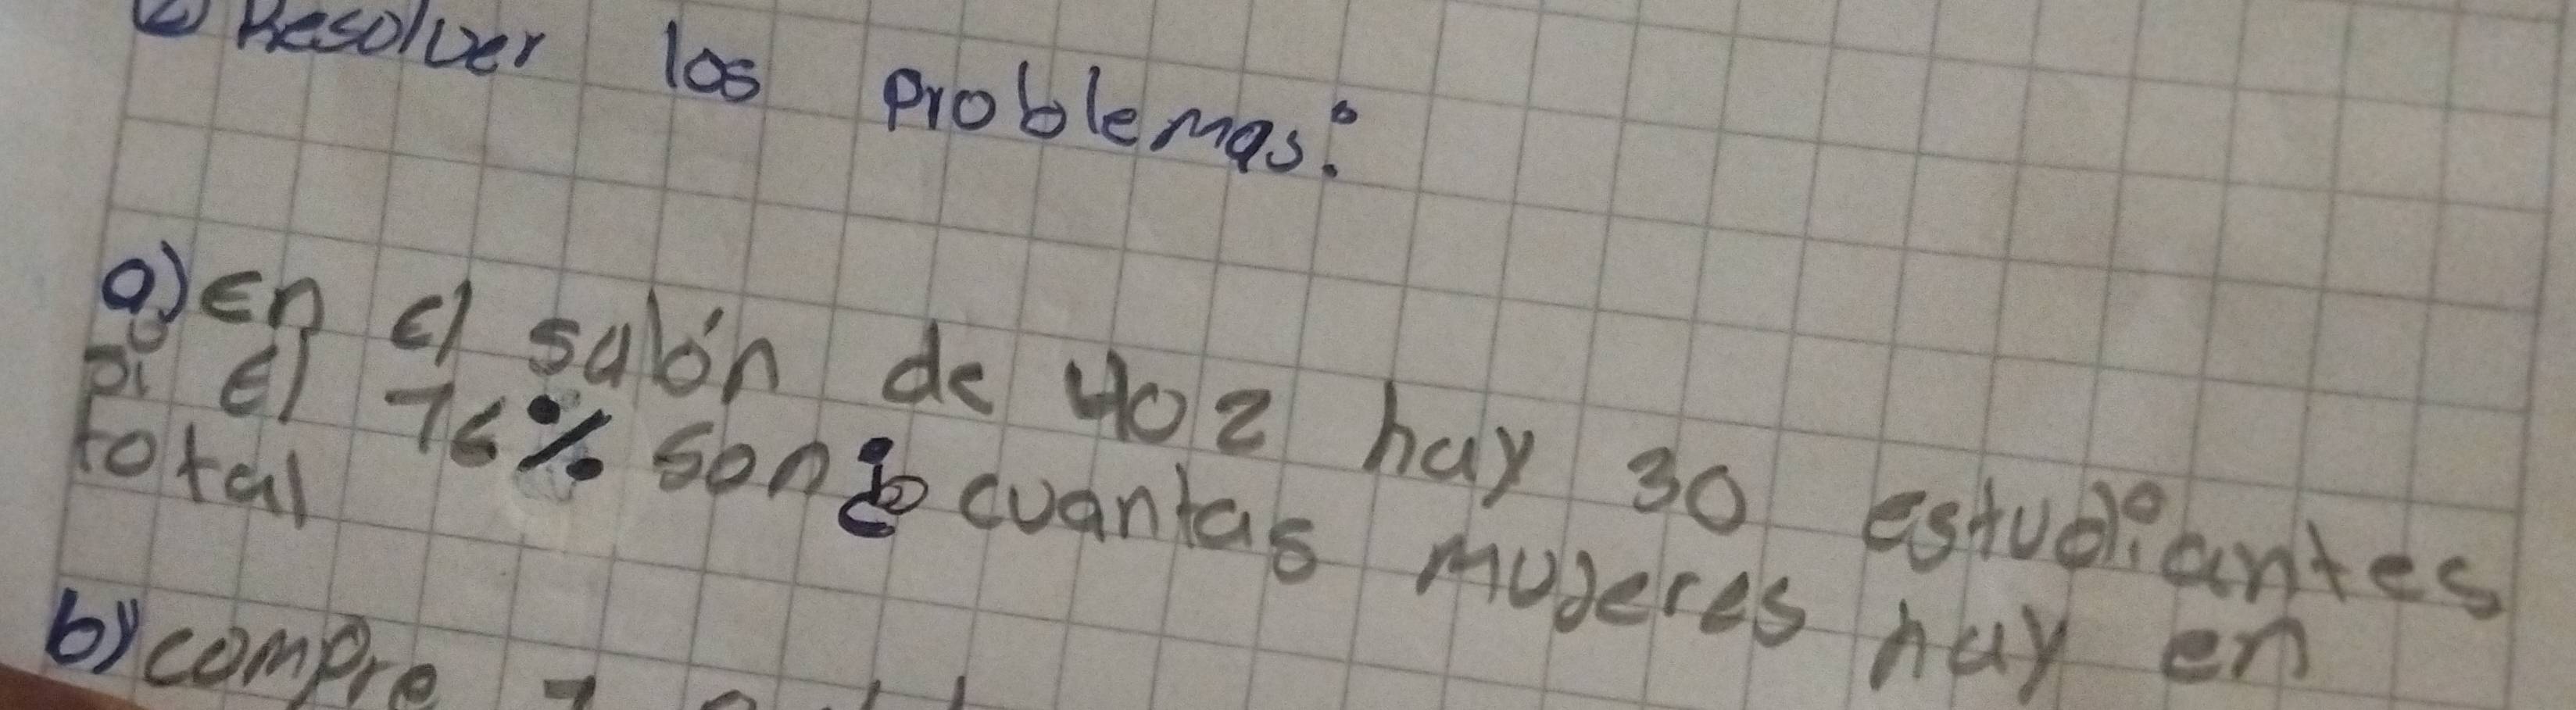 2) Resolver los problemas:
a) En el salón de 402 hay 30 estudiantes
si el 76% son ¿ cuantas mujeres hay en
total
b) compre